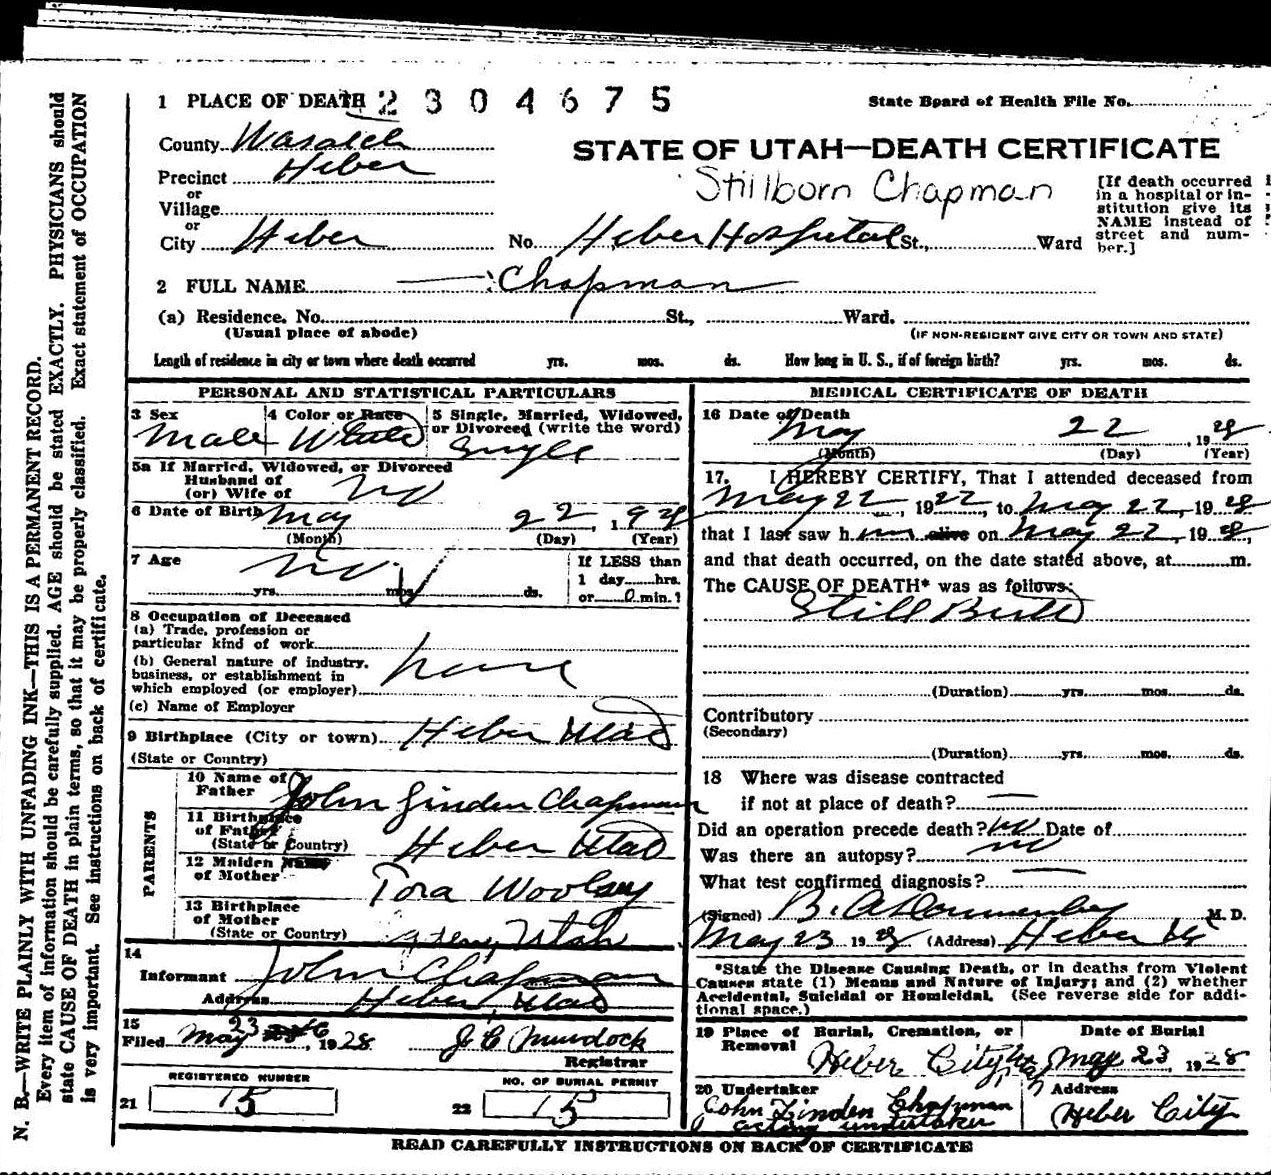 1 PLACE OF DEATH 2304675
State Board of Health File No.
County Wasatch
STATE OF UTAH—DEATH CERTIFICATE
Precinct Heber
Stillborn Chapman
or
Village
or
City Heber No. Heber Hospital St., Ward
[If death occurred
in a hospital or in-
stitution give its
NAME instead of
street and num-
ber.]
2 FULL NAME Chapman
(a) Residence. No. St., Ward.
(Usual place of abode)
(IF NON-RESIDENT GIVE CITY OR TOWN AND STATE)
Length of residence in city or town where death occurred yrs. mos. ds. How long in U. S., if of foreign birth? yrs. mos. ds.
PERSONAL AND STATISTICAL PARTICULARS
3 Sex
Male
4 Color or Race
White
5 Single, Married, Widowed,
or Divorced (write the word)
Single
5a If Married, Widowed, or Divorced
Husband of
(or) Wife of
no
6 Date of Birth May 22, 1928
(Month) (Day) (Year)
7 Age
no
yrs. mos. ds.
If LESS than
1 day hrs.
or 0 min.?
8 Occupation of Deceased
(a) Trade, profession or
particular kind of work
(b) General nature of industry,
business, or establishment in
which employed (or employer)
none
(c) Name of Employer
9 Birthplace (City or town) Heber Utah
(State or Country)
PARENTS
10 Name of
Father John Linden Chapman
11 Birthplace
of Father
(State or Country) Heber Utah
12 Maiden Name
of Mother Tora Woolsey
13 Birthplace
of Mother
(State or Country) Utah
14
Informant John Chapman
Address Heber, Utah
15
Filed May 23, 1928 J C Murdock
Registrar
REGISTERED NUMBER
21 15
NO. OF BURIAL PERMIT
22 15
MEDICAL CERTIFICATE OF DEATH
16 Date of Death
May 22, 1928
(Month) (Day) (Year)
17. I HEREBY CERTIFY, That I attended deceased from
May 22, 1922, to May 22, 1928
that I last saw him alive on May 22, 1928,
and that death occurred, on the date stated above, at m.
The CAUSE OF DEATH* was as follows:
Still Birth
(Duration) yrs. mos. ds.
Contributory
(Secondary)
(Duration) yrs. mos. ds.
18 Where was disease contracted
if not at place of death?
Did an operation precede death? no Date of
Was there an autopsy? no
What test confirmed diagnosis?
(Signed) B. A. M. D.
May 23 1928 (Address) Heber Ut
*State the Disease Causing Death, or in deaths from Violent
Causes state (1) Means and Nature of Injury; and (2) whether
Accidental, Suicidal or Homicidal. (See reverse side for addi-
tional space.)
19 Place of Burial, Cremation, or
Removal
Heber City
Date of Burial
May 23, 1928
20 Undertaker
John Linden Chapman
acting undertaker
Address
Heber City
READ CAREFULLY INSTRUCTIONS ON BACK OF CERTIFICATE
N. B.—WRITE PLAINLY WITH UNFADING INK—THIS IS A PERMANENT RECORD.
Every item of information should be carefully supplied. AGE should be stated EXACTLY. PHYSICIANS should
state CAUSE OF DEATH in plain terms, so that it may be properly classified. Exact statement of OCCUPATION
is very important. See instructions on back of certificate.